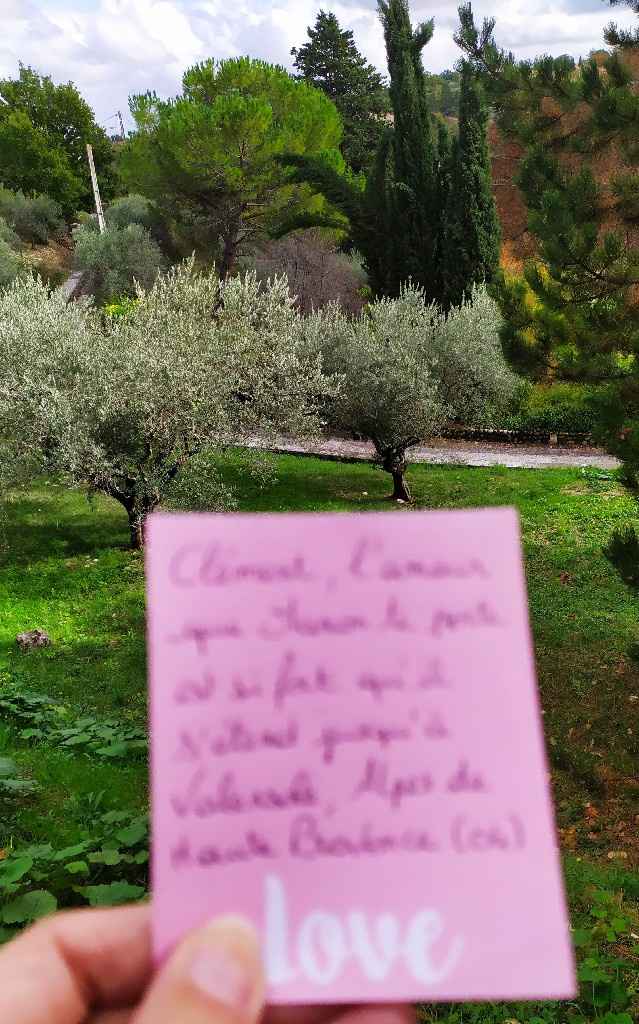 Clément, l'amour
que te porte
est si fort qu'il
s'étend jusqu'à
Valensole, Alpes de
Haute Provence (04)
love